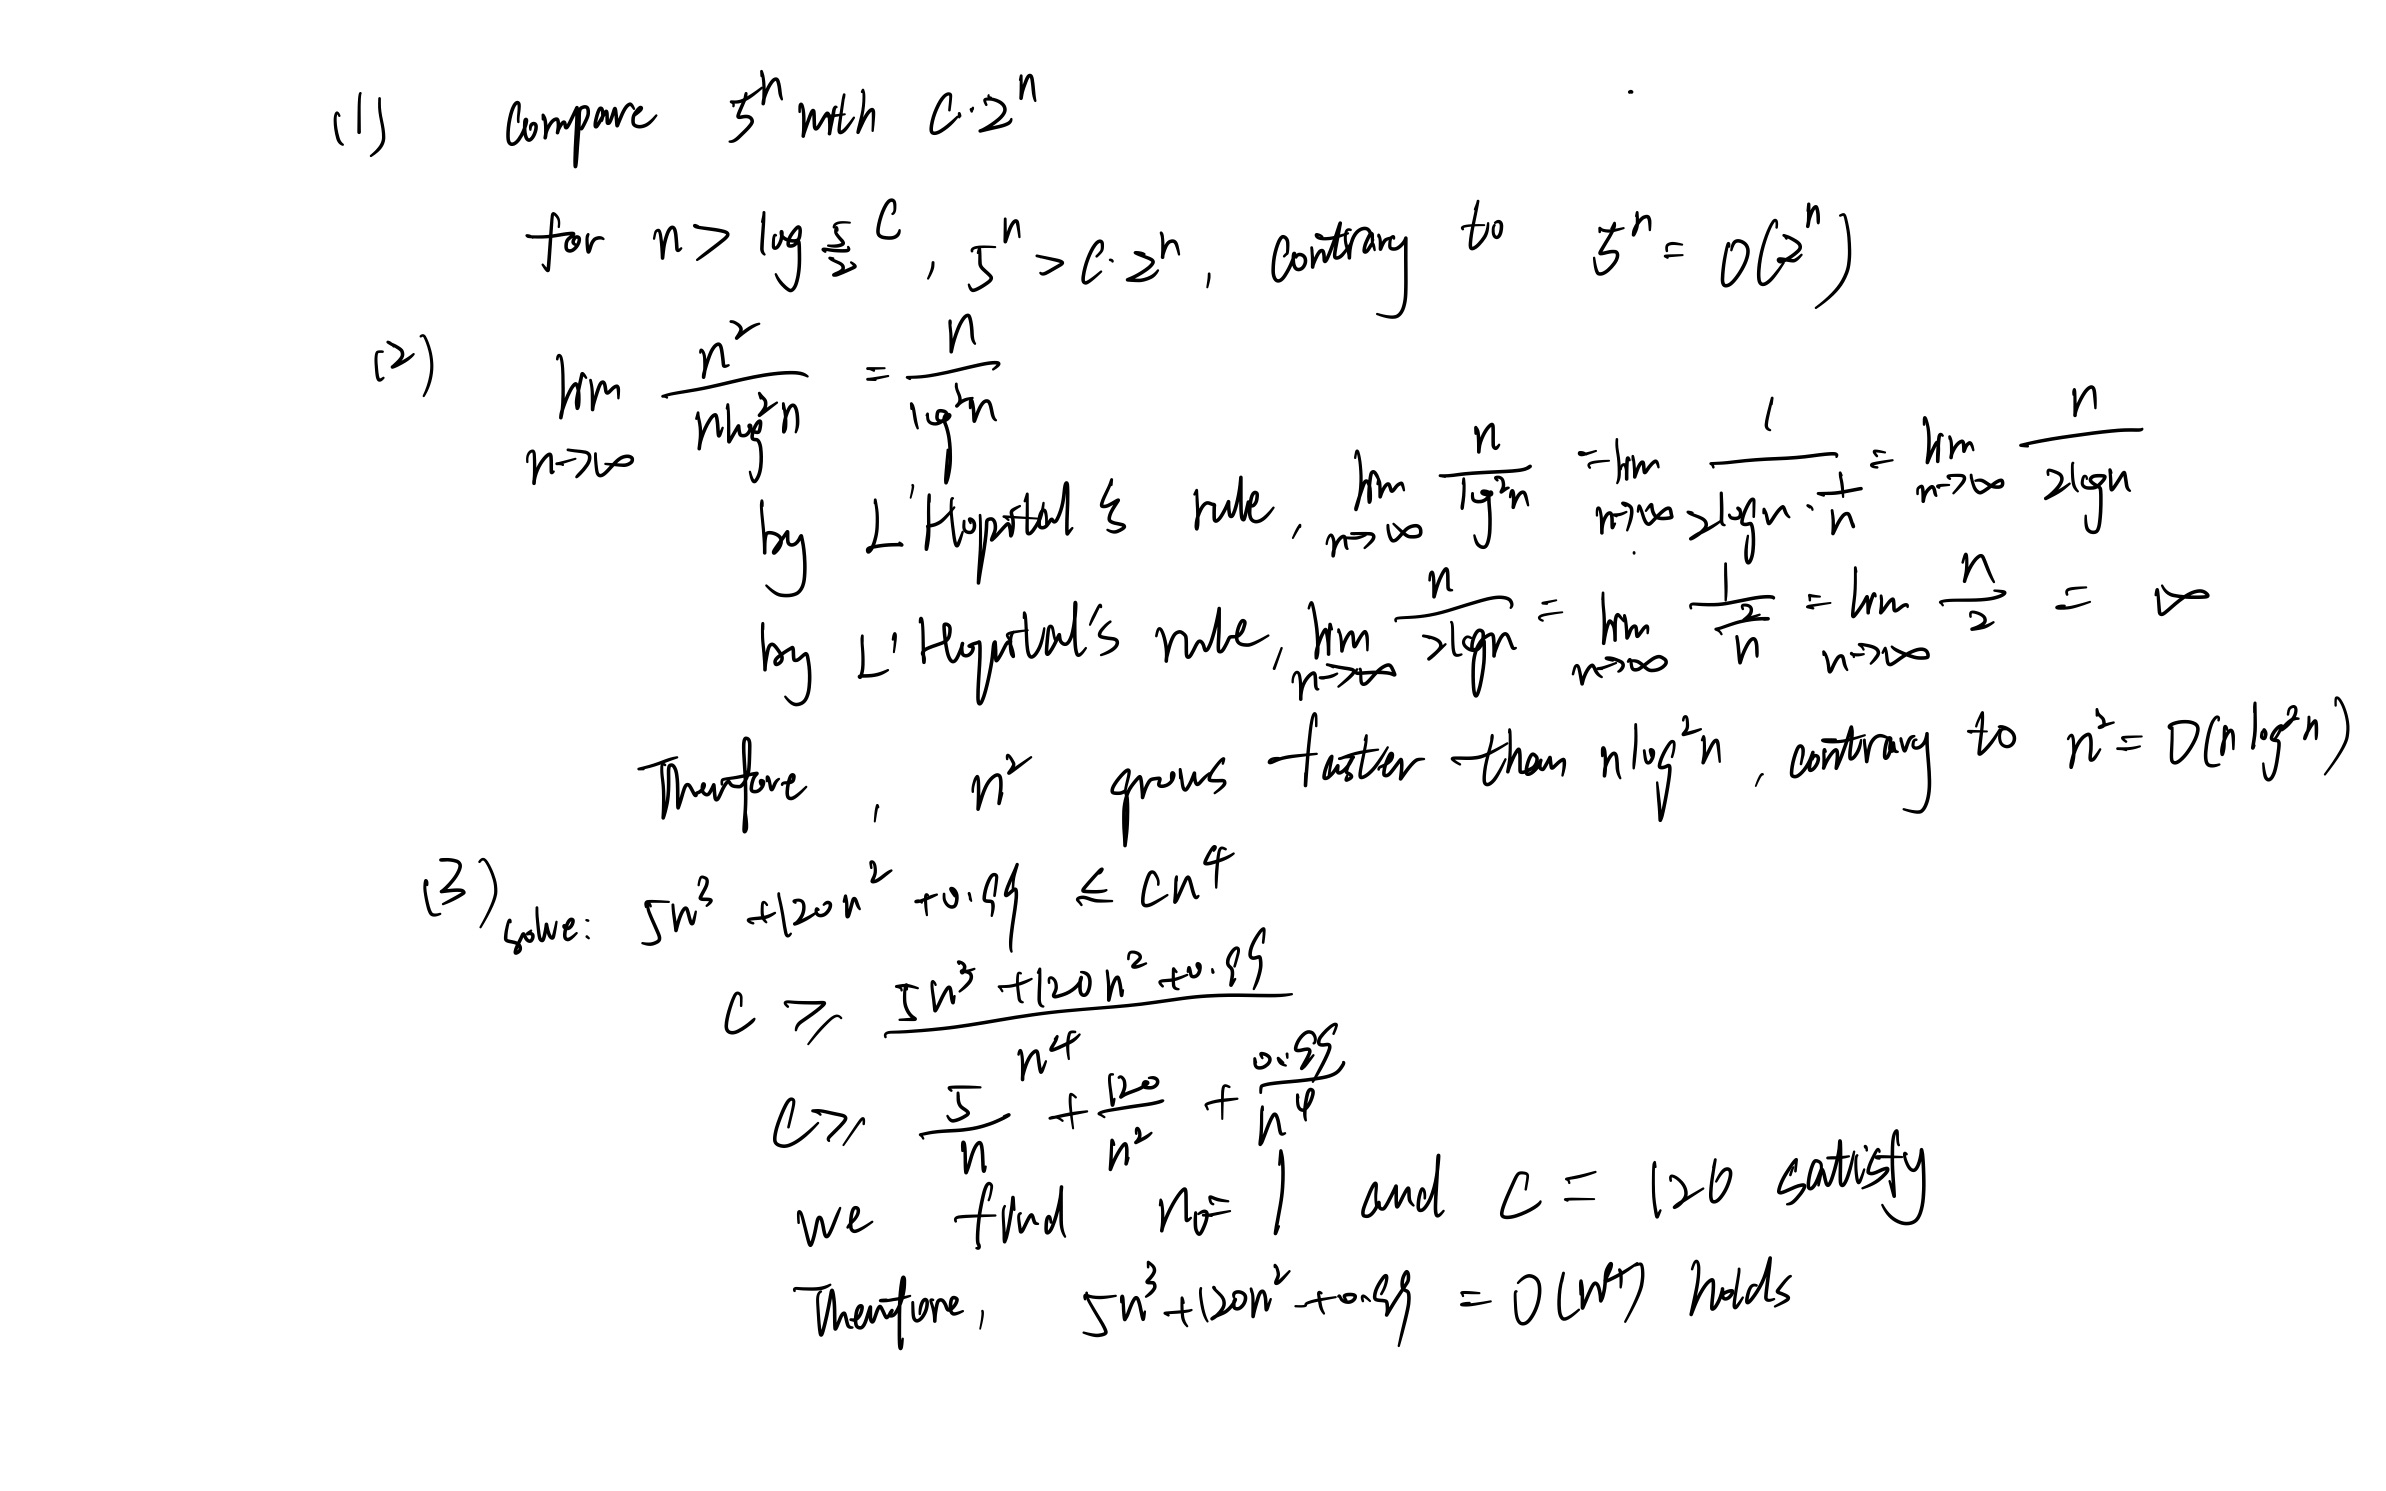 (1) compare 5^n with C·2^n
for n > log_{5/2} C, 5^n > C·2^n, contrary to 5^n = O(2^n)
(2) lim_{n→∞} n^2/(n log^2 n) = n/(log^2 n)
by L'Hopital's rule, lim_{n→∞} n/(log^2 n) = lim_{n→∞} 1/(2 log n · 1/n) = lim_{n→∞} n/(2 log n)
by L'Hopital's rule, lim_{n→∞} n/(2 log n) = lim_{n→∞} 1/(2/n) = lim_{n→∞} n/2 = ∞
Therefore, n^2 grows faster than n log^2 n, contrary to n^2 = O(n log^2 n)
(3) solve: 5n^3 + 120n^2 + 0.99 ≤ cn^4
C ≥ (5n^3 + 120n^2 + 0.99)/n^4
C ≥ 5/n + 120/n^2 + 0.99/n^4
we find n_0 = 1 and C = 120 satisfy
Therefore, 5n^3 + 120n^2 + 0.99 = O(n^4) holds